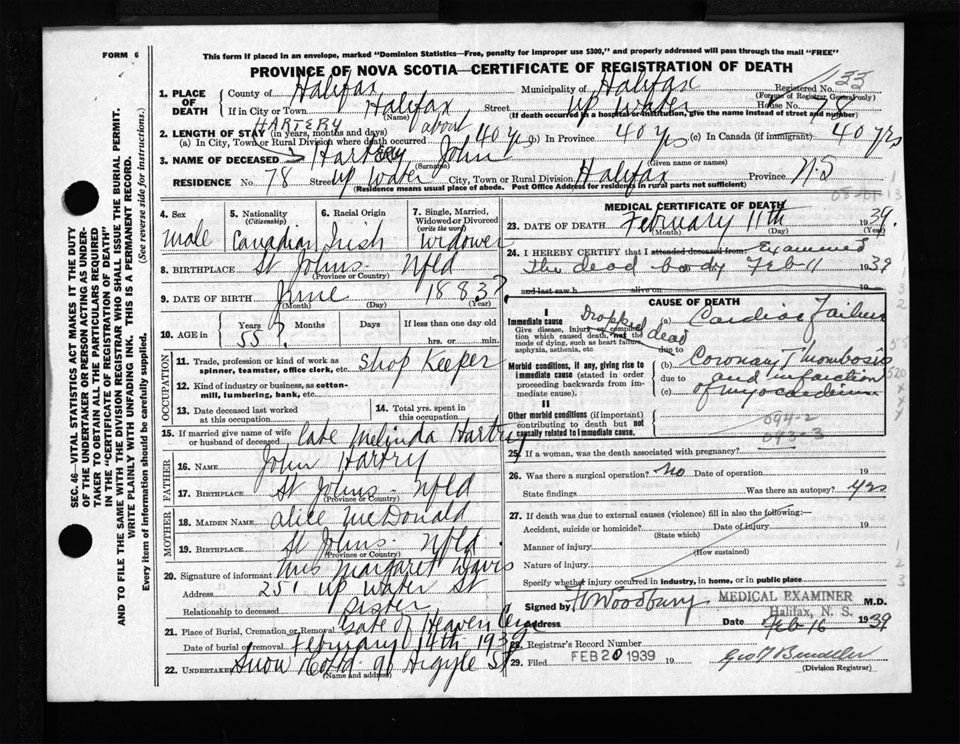 FORM 6
This form if placed in an envelope, marked "Dominion Statistics—Free, penalty for improper use $300," and properly addressed will pass through the mail "FREE"
PROVINCE OF NOVA SCOTIA—CERTIFICATE OF REGISTRATION OF DEATH
1. PLACE OF DEATH
County of Halifax Municipality of Halifax Registered No. 133
(For use of Registrar General only)
If in City or Town Halifax Street up Water House No. 78
(Name) (If death occurred in a hospital or institution, give the name instead of street and number)
HARTERY
2. LENGTH OF STAY (in years, months and days) about
(a) In City, Town or Rural Division where death occurred 40 yrs (b) In Province 40 yrs (c) In Canada (if immigrant) 40 yrs
3. NAME OF DECEASED Hartery John
(Surname) (Given name or names)
RESIDENCE No. 78 Street up Water City, Town or Rural Division Halifax Province N.S
(Residence means usual place of abode. Post Office Address for residents in rural parts not sufficient)
4. Sex
male
5. Nationality (Citizenship)
Canadian
6. Racial Origin
Irish
7. Single, Married, Widowed or Divorced (write the word)
Widower
8. BIRTHPLACE St Johns Nfld
(Province or Country)
9. DATE OF BIRTH June 1883?
(Month) (Day) (Year)
10. AGE in
Years Months Days If less than one day
55? hrs. or min.
OCCUPATION
11. Trade, profession or kind of work as spinner, teamster, office clerk, etc. Shop Keeper
12. Kind of industry or business, as cotton-mill, lumbering, bank, etc.
13. Date deceased last worked at this occupation
14. Total yrs. spent in this occupation
15. If married give name of wife or husband of deceased late Melinda Hartry
FATHER
16. NAME John Hartry
17. BIRTHPLACE St Johns - Nfld
(Province or Country)
MOTHER
18. MAIDEN NAME Alice McDonald
19. BIRTHPLACE St Johns - Nfld
(Province or Country)
20. Signature of informant Mrs Margaret Davis
Address 251 up Water St
Relationship to deceased Sister
21. Place of Burial, Cremation or Removal Gate of Heaven Cem
Date of burial or removal February 14th 1939
22. UNDERTAKER Snow Argyle St
(Name and address)
MEDICAL CERTIFICATE OF DEATH
23. DATE OF DEATH February 11th 1939.
(Month) (Day) (Year)
24. I HEREBY CERTIFY that I attended deceased from Examined
the dead body Feb 11 1939
and last saw h alive on 19
CAUSE OF DEATH
I
Immediate cause Dropped dead (a) Cardiac Failure
Give disease, injury or complication which caused death, not the mode of dying, such as heart failure, asphyxia, asthenia, etc.
due to
Morbid conditions, if any, giving rise to immediate cause (stated in order proceeding backwards from immediate cause).
(b) Coronary Thrombosis
due to and infarction
(c) of myocardium
II
Other morbid conditions (if important) contributing to death but not causally related to immediate cause.
094-2
093-3
25. If a woman, was the death associated with pregnancy?
26. Was there a surgical operation? No Date of operation 19
State findings Was there an autopsy? yes
27. If death was due to external causes (violence) fill in also the following:—
Accident, suicide or homicide? Date of injury 19
(State which)
Manner of injury
(How sustained)
Nature of injury
Specify whether injury occurred in industry, in home, or in public place
Signed by Woodbury MEDICAL EXAMINER M.D.
Halifax, N. S.
Address Date Feb 16 1939
28. Registrar's Record Number
29. Filed FEB 20 1939 19
(Division Registrar)
SEC. 46—VITAL STATISTICS ACT MAKES IT THE DUTY
OF THE UNDERTAKER OR PERSON ACTING AS UNDER-
TAKER TO OBTAIN ALL THE PARTICULARS REQUIRED
IN THE "CERTIFICATE OF REGISTRATION OF DEATH"
AND TO FILE THE SAME WITH THE DIVISION REGISTRAR WHO SHALL ISSUE THE BURIAL PERMIT.
WRITE PLAINLY WITH UNFADING INK. THIS IS A PERMANENT RECORD.
Every item of information should be carefully supplied.
(See reverse side for instructions.)